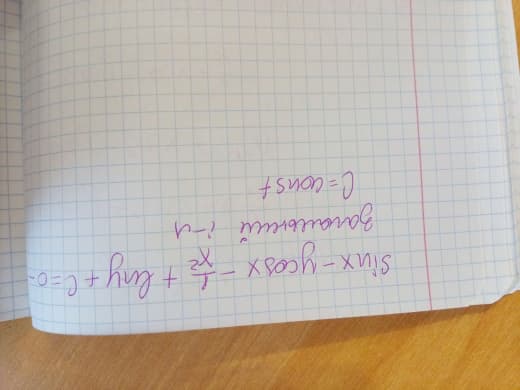 sinx - ycosx - 1/x² + lny + C = 0 -
загальний і-л
C = const